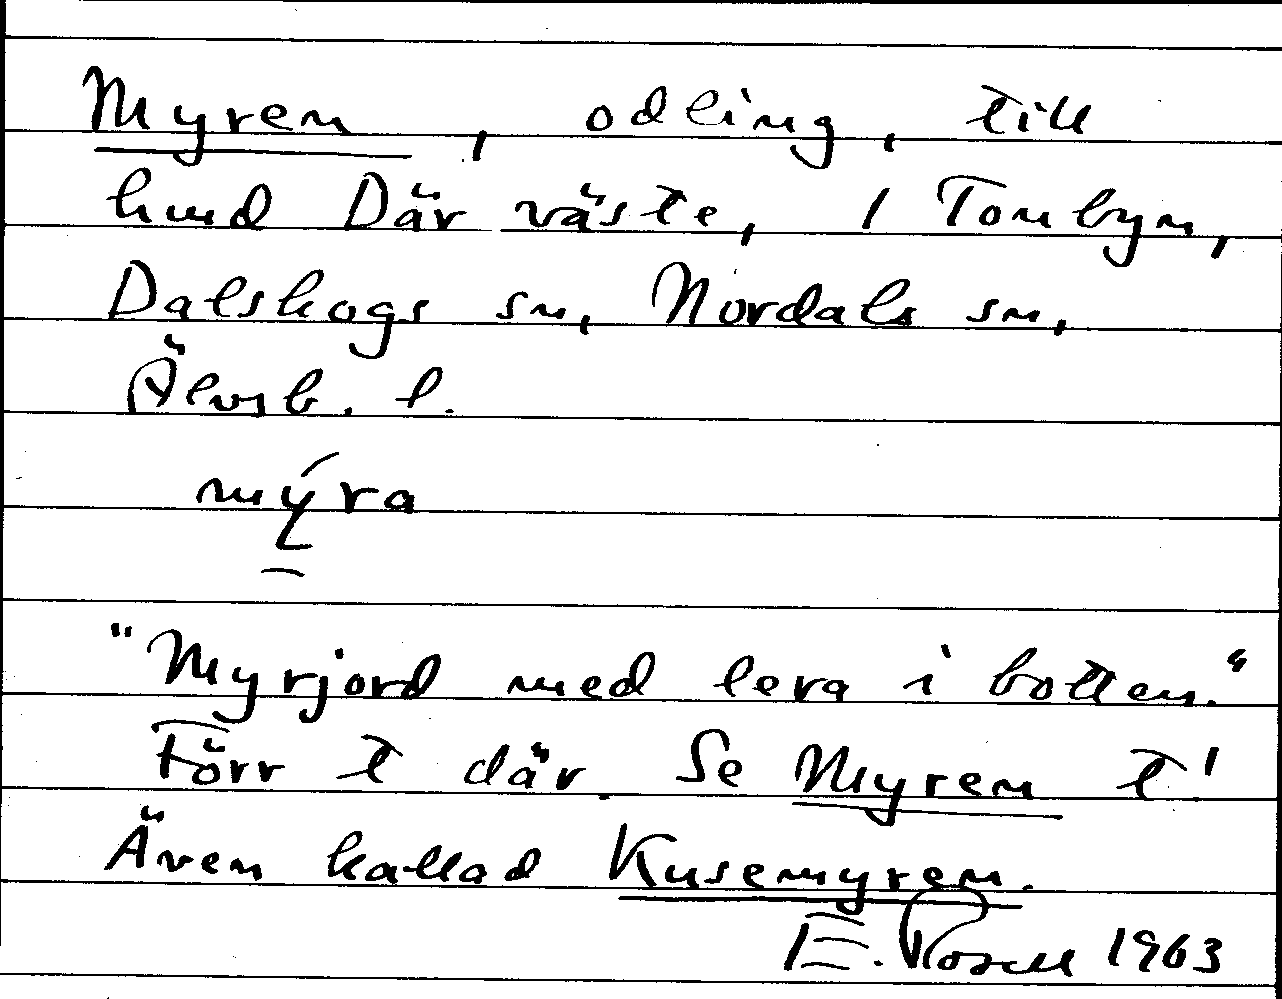 Myren, odling, till
hmd Där väste, 1 Tonbyn,
Dalskogs sn, Nordals sn,
Älvsb. l.
mýra
"Myrjord med lera i botten."
Förr t där. Se Myren t!
Även kallad Kusemyren.
E. Rosell 1963